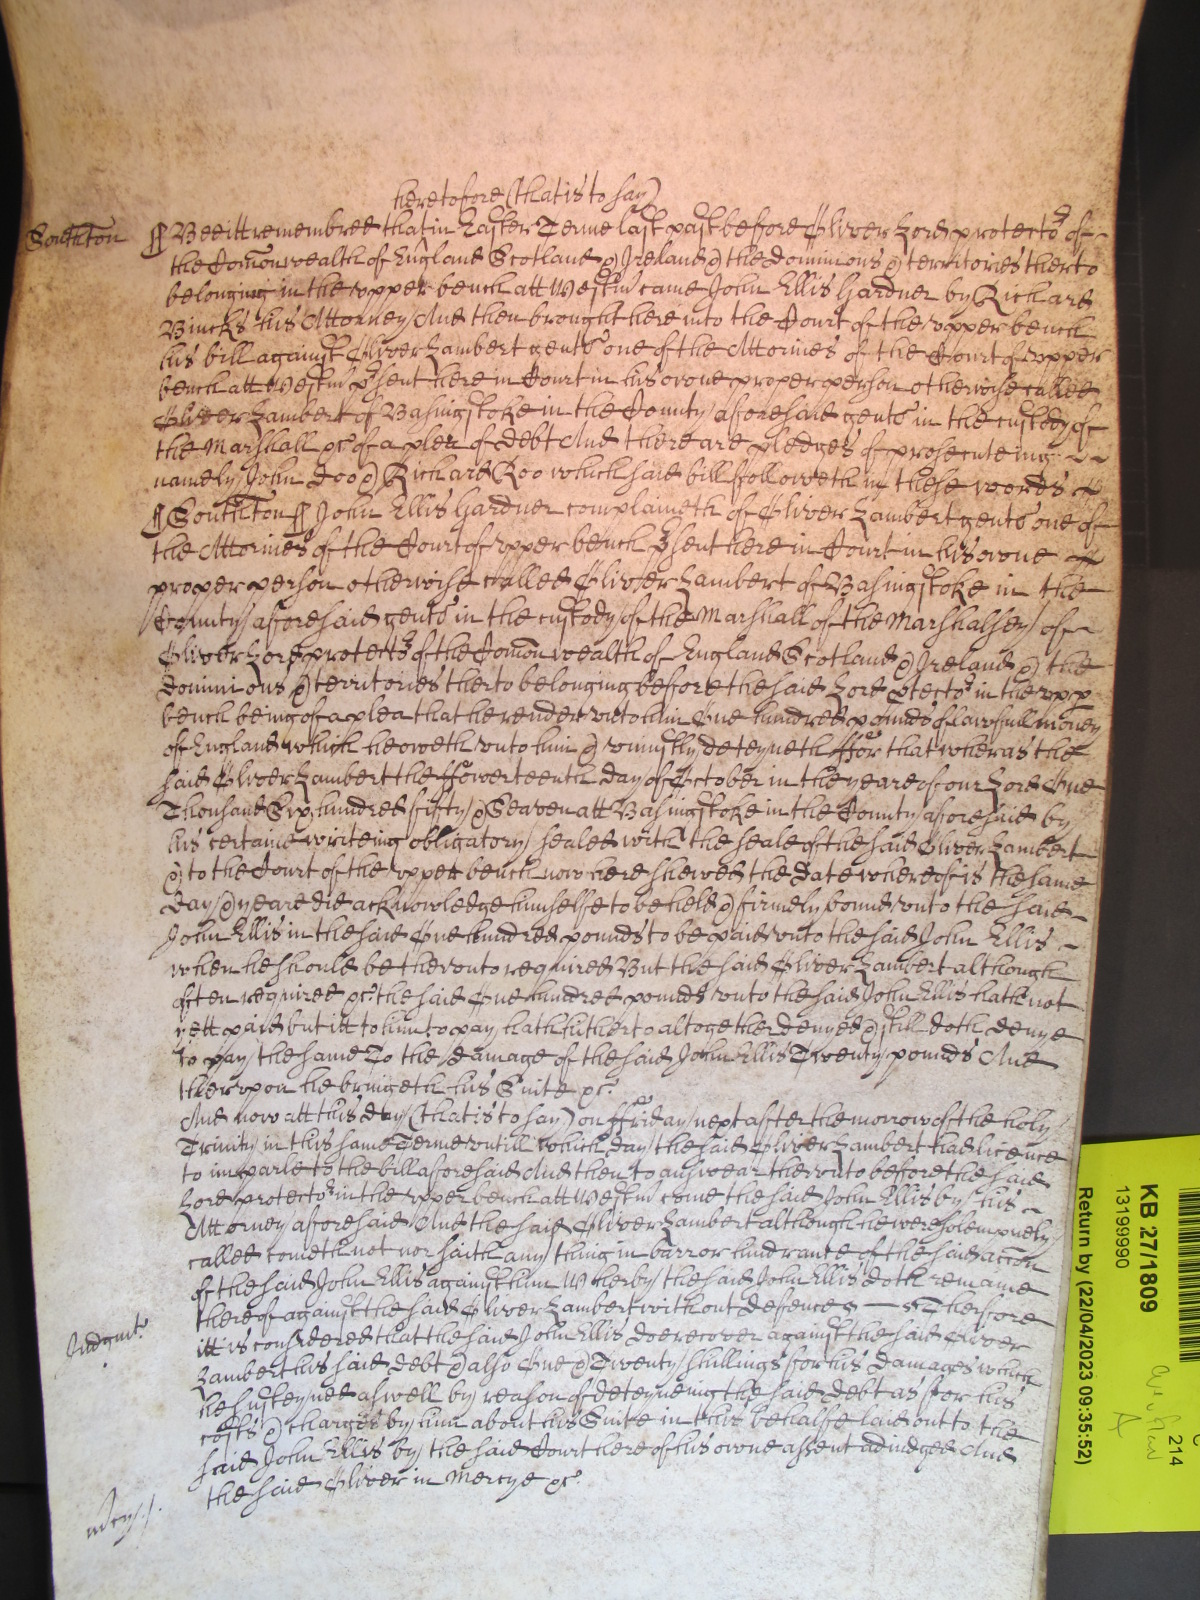 heretofore (that is to say)
Southton ¶ Bee itt remembred that in Easter Terme last past before Oliver Lord protector of
the Comonwealth of England Scotland & Ireland & the dominions & territories therto
belonging in the upper bench att Westm came John Ellis Gardner by Richard
Bincks his Attorney And then brought here into the Court of the upper bench
his bill against Oliver Lambert gent one of the Attornies of the Court of upper
bench att Westm psent here in Court in his owne proper person otherwise called
Oliver Lambert of Basingstoke in the County aforesaid gent in the custody of
the Marshall &c of a plea of debt And there are pledges of prosecuteing
namely John Doo & Richard Roo which said bill followeth in these words
¶ Southton ¶ John Ellis Gardner complaineth of Oliver Lambert gent one of
the Attornies of the Court of upper bench psent here in Court in his owne
proper person otherwise called Oliver Lambert of Basingstoke in the
County aforesaid gent in the custody of the Marshall of the Marshalsey of
Oliver Lord protector of the Comon wealth of England Scotland & Ireland & the
dominions & territories therto belonging before the said Lord ptector in the upp
bench being of a plea that he render unto him One hundred pounds of lawfull money
of England which he oweth unto him & uniustly deteyneth ffor that wheras the
said Oliver Lambert the ffowerteenth day of October in the yeare of our Lord One
Thousand Six hundred fifty & Seaven att Basingstoke in the County aforesaid by
his certaine writeing obligatory sealed with the seale of the said Oliver Lambert
& to the Court of the upper bench now here shewed the date wherof is the same
day & yeare did acknowledge himselfe to be held & firmely bound unto the said
John Ellis in the said One hundred pounds to be paid unto the said John Ellis
when he should be therunto required But the said Oliver Lambert although
often required &c the said One hundred pounds unto the said John Ellis hath not
yett paid but itt to him to pay hath hitherto altogether denyed & still doth denye
to pay the same To the damage of the said John Ellis Twenty pounds And
therupon he bringeth his Suite &c
And now att this day (that is to say) on ffriday next after the morrow of the holy
Trinity in this same Terme untill which day the said Oliver Lambert had licence
to imparle to the bill aforesaid And then to answear therunto before the said
Lord protector in the upper bench att Westm come the said John Ellis by his
Attorney aforesaid And the said Oliver Lambert although he were solempnely
called cometh not nor saith any thing in barr or hindrance of the said accon
of the said John Ellis against him Wherby the said John Ellis doth remaine
therof against the said Oliver Lambert without defence Therfore
Judgmt itt is considered that the said John Ellis doe recover against the said Oliver
Lambert his said debt & also One & Twenty shillings for his damages which
he susteyned aswell by reason of deteyneing the said debt as for his
costs & charges by him about his Suite in this behalfe laid out to the
said John Ellis by the said Court here of his owne assent adiudged And
mcy the said Oliver in Mercye &c
KB 27/1809
13199990
Return by (22/04/2023 09:35:52)
214
A